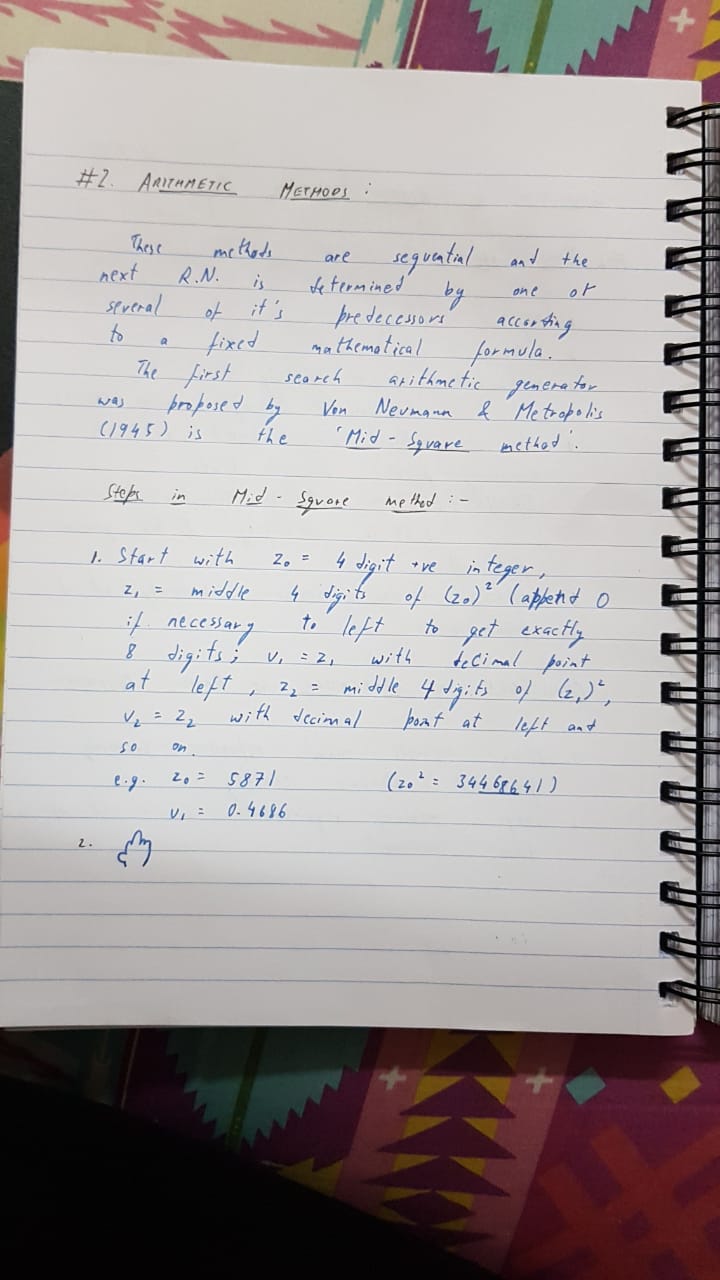 #2. ARITHMETIC METHODS :
These methods are sequential and the
next R.N. is determined by one or
several of it's predecessors according
to a fixed mathematical formula.
The first search arithmetic generator
was proposed by Von Neumann & Metropolis
(1945) is the 'Mid - Square method'.
Steps in Mid - Square method :-
1. Start with z₀ = 4 digit +ve integer,
z₁ = middle 4 digits of (z₀)² (append 0
if necessary to left to get exactly
8 digits; U₁ = z₁ with decimal point
at left, z₂ = middle 4 digits of (z₁)²,
U₂ = z₂ with decimal point at left and
so on.
e.g. z₀ = 5871 (z₀² = 34468641)
U₁ = 0.4686
2.